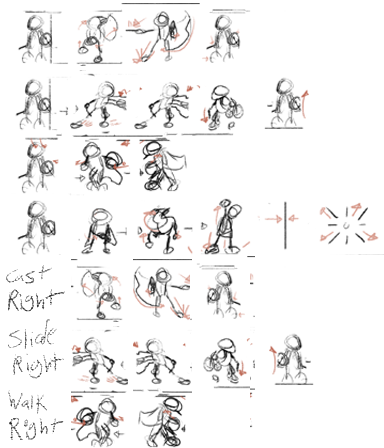 Cast
Right
Slide
Right
Walk
Right